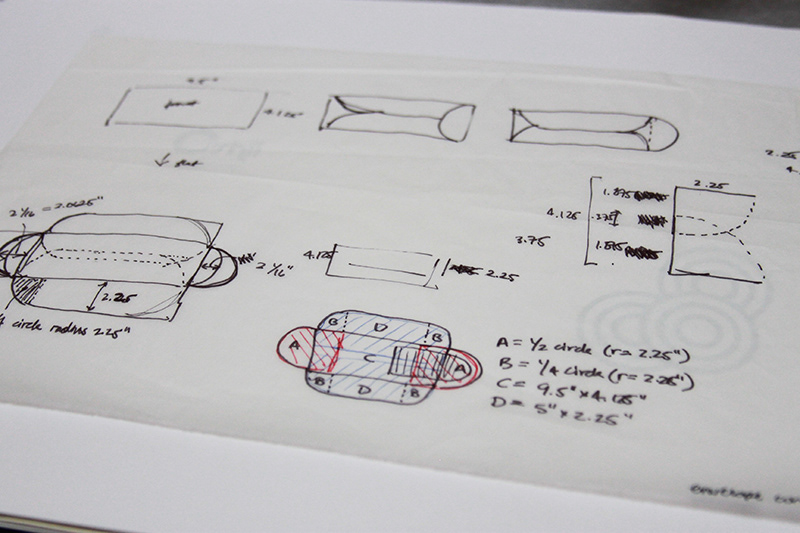 9.5"
front
4.125"
2.25
4.
2.25
1.875
4.125
.275
1.875
3.75
2 1/16 = 2.0625"
2 1/16"
2.25
4.125
2.25
1/4 circle radius 2.25"
B D B
A C A
B D B
A = 1/2 circle (r = 2.25")
B = 1/4 circle (r = 2.25")
C = 9.5" x 4.125"
D = 5" x 2.25"